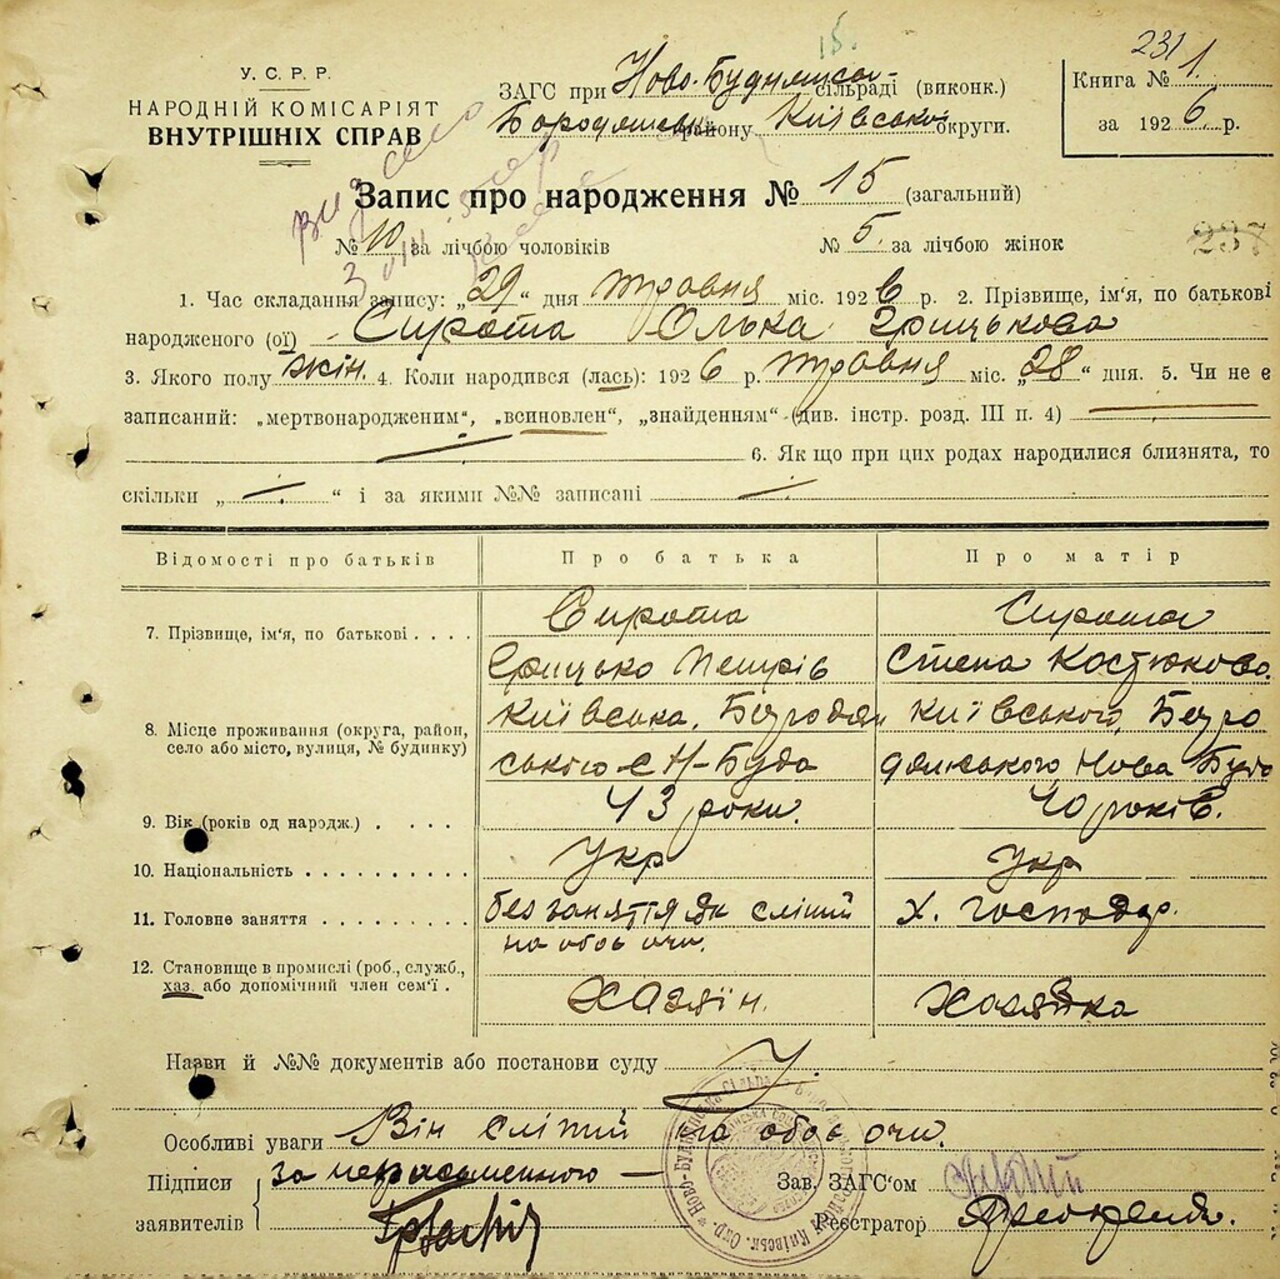 15.
231
У. С. Р. Р.
НАРОДНІЙ КОМІСАРІЯТ
ВНУТРІШНІХ СПРАВ
ЗАГС при Ново-Буднянськ- сільраді (виконк.)
Бородянськ району Київсько округи.
Книга № 1.
за 1926 р.
Запис про народження № 15 (загальний)
№ 10 за лічбою чоловіків № 5. за лічбою жінок
237
1. Час складання запису: „29“ дня травня міс. 1926 р. 2. Прізвище, ім'я, по батькові
народженого (ої) Сирота Олька Грицькова
3. Якого полу жін. 4. Коли народився (лась): 1926 р. травня міс. „28“ дня. 5. Чи не є
записаний: „мертвонародженим“, „всиновлен“, „знайденням“ (див. інстр. розд. III п. 4)
6. Як що при цих родах народилися близнята, то
скільки „ “ і за якими №№ записані
Відомості про батьків Про батька Про матір
7. Прізвище, ім'я, по батькові . . . . Сирота Грицько Петрів Сирота Степа Костюкова.
8. Місце проживання (округа, район, село або місто, вулиця, № будинку) Київська, Бородян ського с Н-Буда Київського, Боро дянського Нова Буда
9. Вік (років од народж.) . . . . 43 роки. 40 років.
10. Національність . . . . . . . . . . Укр Укр
11. Головне заняття . . . . . . . . без заняття як сліпий на обоє очи. х. господар.
12. Становище в промислі (роб., служб., хаз. або допомічний член сем'ї . Хазяїн. Хазяйка
Назви й №№ документів або постанови суду
Особливі уваги Він сліпий на обоє очи.
Підписи за неписьменного —
заявителів
Зав. ЗАГС'ом
Реєстратор